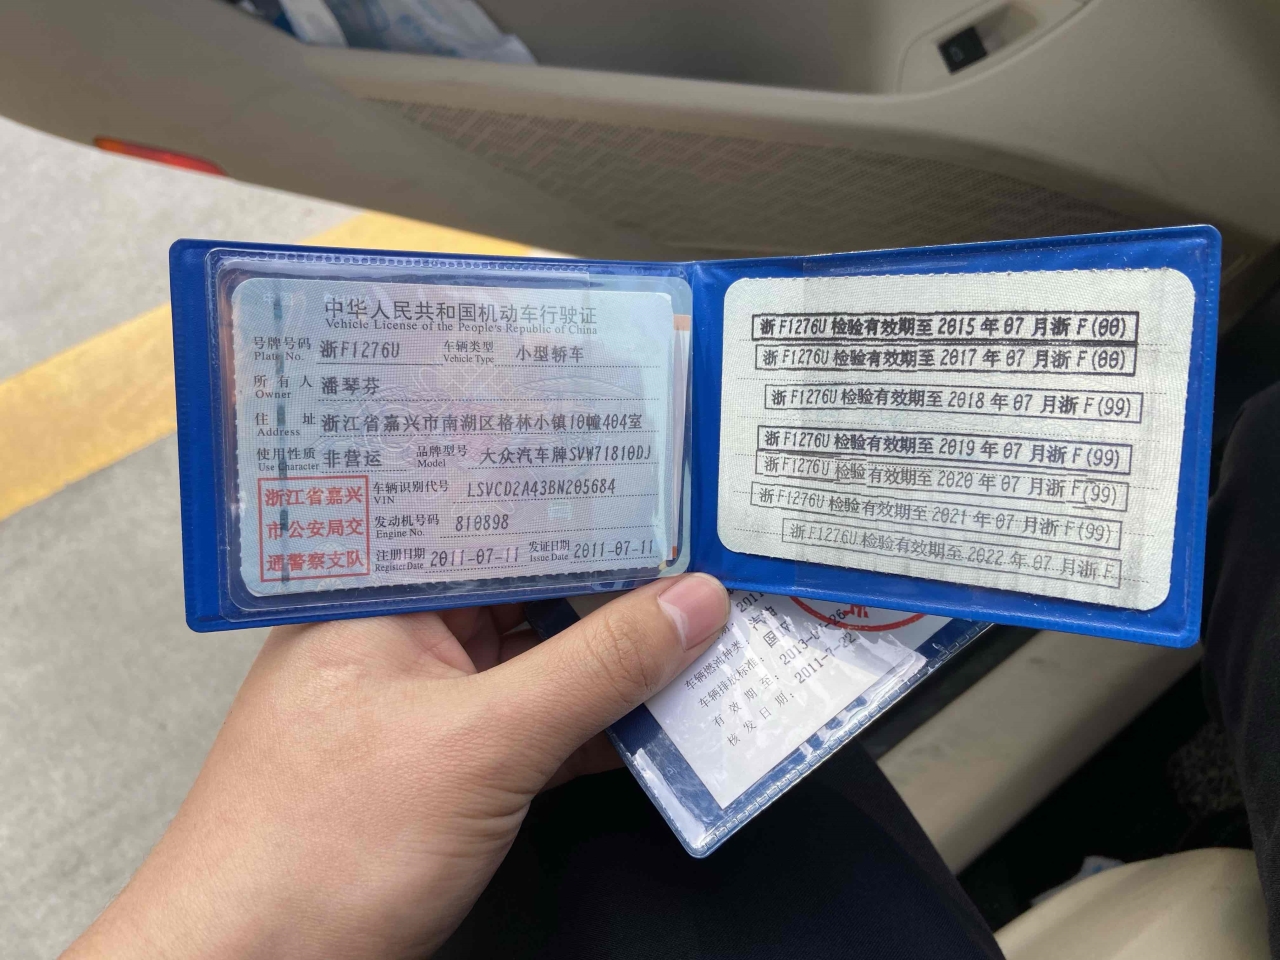 中华人民共和国机动车行驶证
Vehicle License of the People's Republic of China
号牌号码 浙F1276U 车辆类型 小型轿车
Plate No. Vehicle Type
所有人 潘琴芬
Owner
住址 浙江省嘉兴市南湖区格林小镇10幢404室
Address
使用性质 非营运 品牌型号 大众汽车牌SVW71810DJ
Use Character Model
浙江省嘉兴
市公安局交
通警察支队
车辆识别代号 LSVCD2A43BN205684
VIN
发动机号码 810898
Engine No.
注册日期 2011-07-11 发证日期 2011-07-11
Register Date Issue Date
浙F1276U 检验有效期至2015年07月浙F(00)
浙F1276U 检验有效期至2017年07月浙F(00)
浙F1276U 检验有效期至2018年07月浙F(99)
浙F1276U 检验有效期至2019年07月浙F(99)
浙F1276U 检验有效期至2020年07月浙F(99)
浙F1276U 检验有效期至2021年07月浙F(99)
浙F1276U 检验有效期至2022年07月浙F
车辆燃油种类: 汽油
车辆排放标准:
有效期至:
核发日期: 2011-7-22